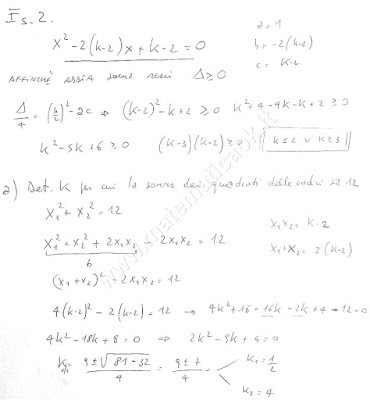 Es. 2.
x² - 2(k-2)x + k - 2 = 0
a = 1
b = -2(k-2)
c = k-2
AFFINCHÉ ABBIA SOLUZ REALI Δ ≥ 0
Δ/4 = (b/2)² - ac ⇒ (k-2)² - k + 2 ≥ 0 k² + 4 - 4k - k + 2 ≥ 0
k² - 5k + 6 ≥ 0 (k-3)(k-2) ≥ 0 k ≤ 2 ∨ k ≥ 3
a) Det. K per cui la somma dei quadrati delle radici sia 12
x₁² + x₂² = 12
x₁x₂ = k-2
x₁² + x₂² + 2x₁x₂ - 2x₁x₂ = 12
x₁+x₂ = 2(k-2)
(x₁+x₂)² - 2x₁x₂ = 12
4(k-2)² - 2(k-2) = 12 → 4k² + 16 - 16k - 2k + 4 - 12 = 0
4k² - 18k + 8 = 0 ⇒ 2k² - 9k + 4 = 0
k½ = 9 ± √81-32 / 4 = 9 ± 7 / 4
k₁ = 1/2
k₂ = 4
www.matematicaok.it